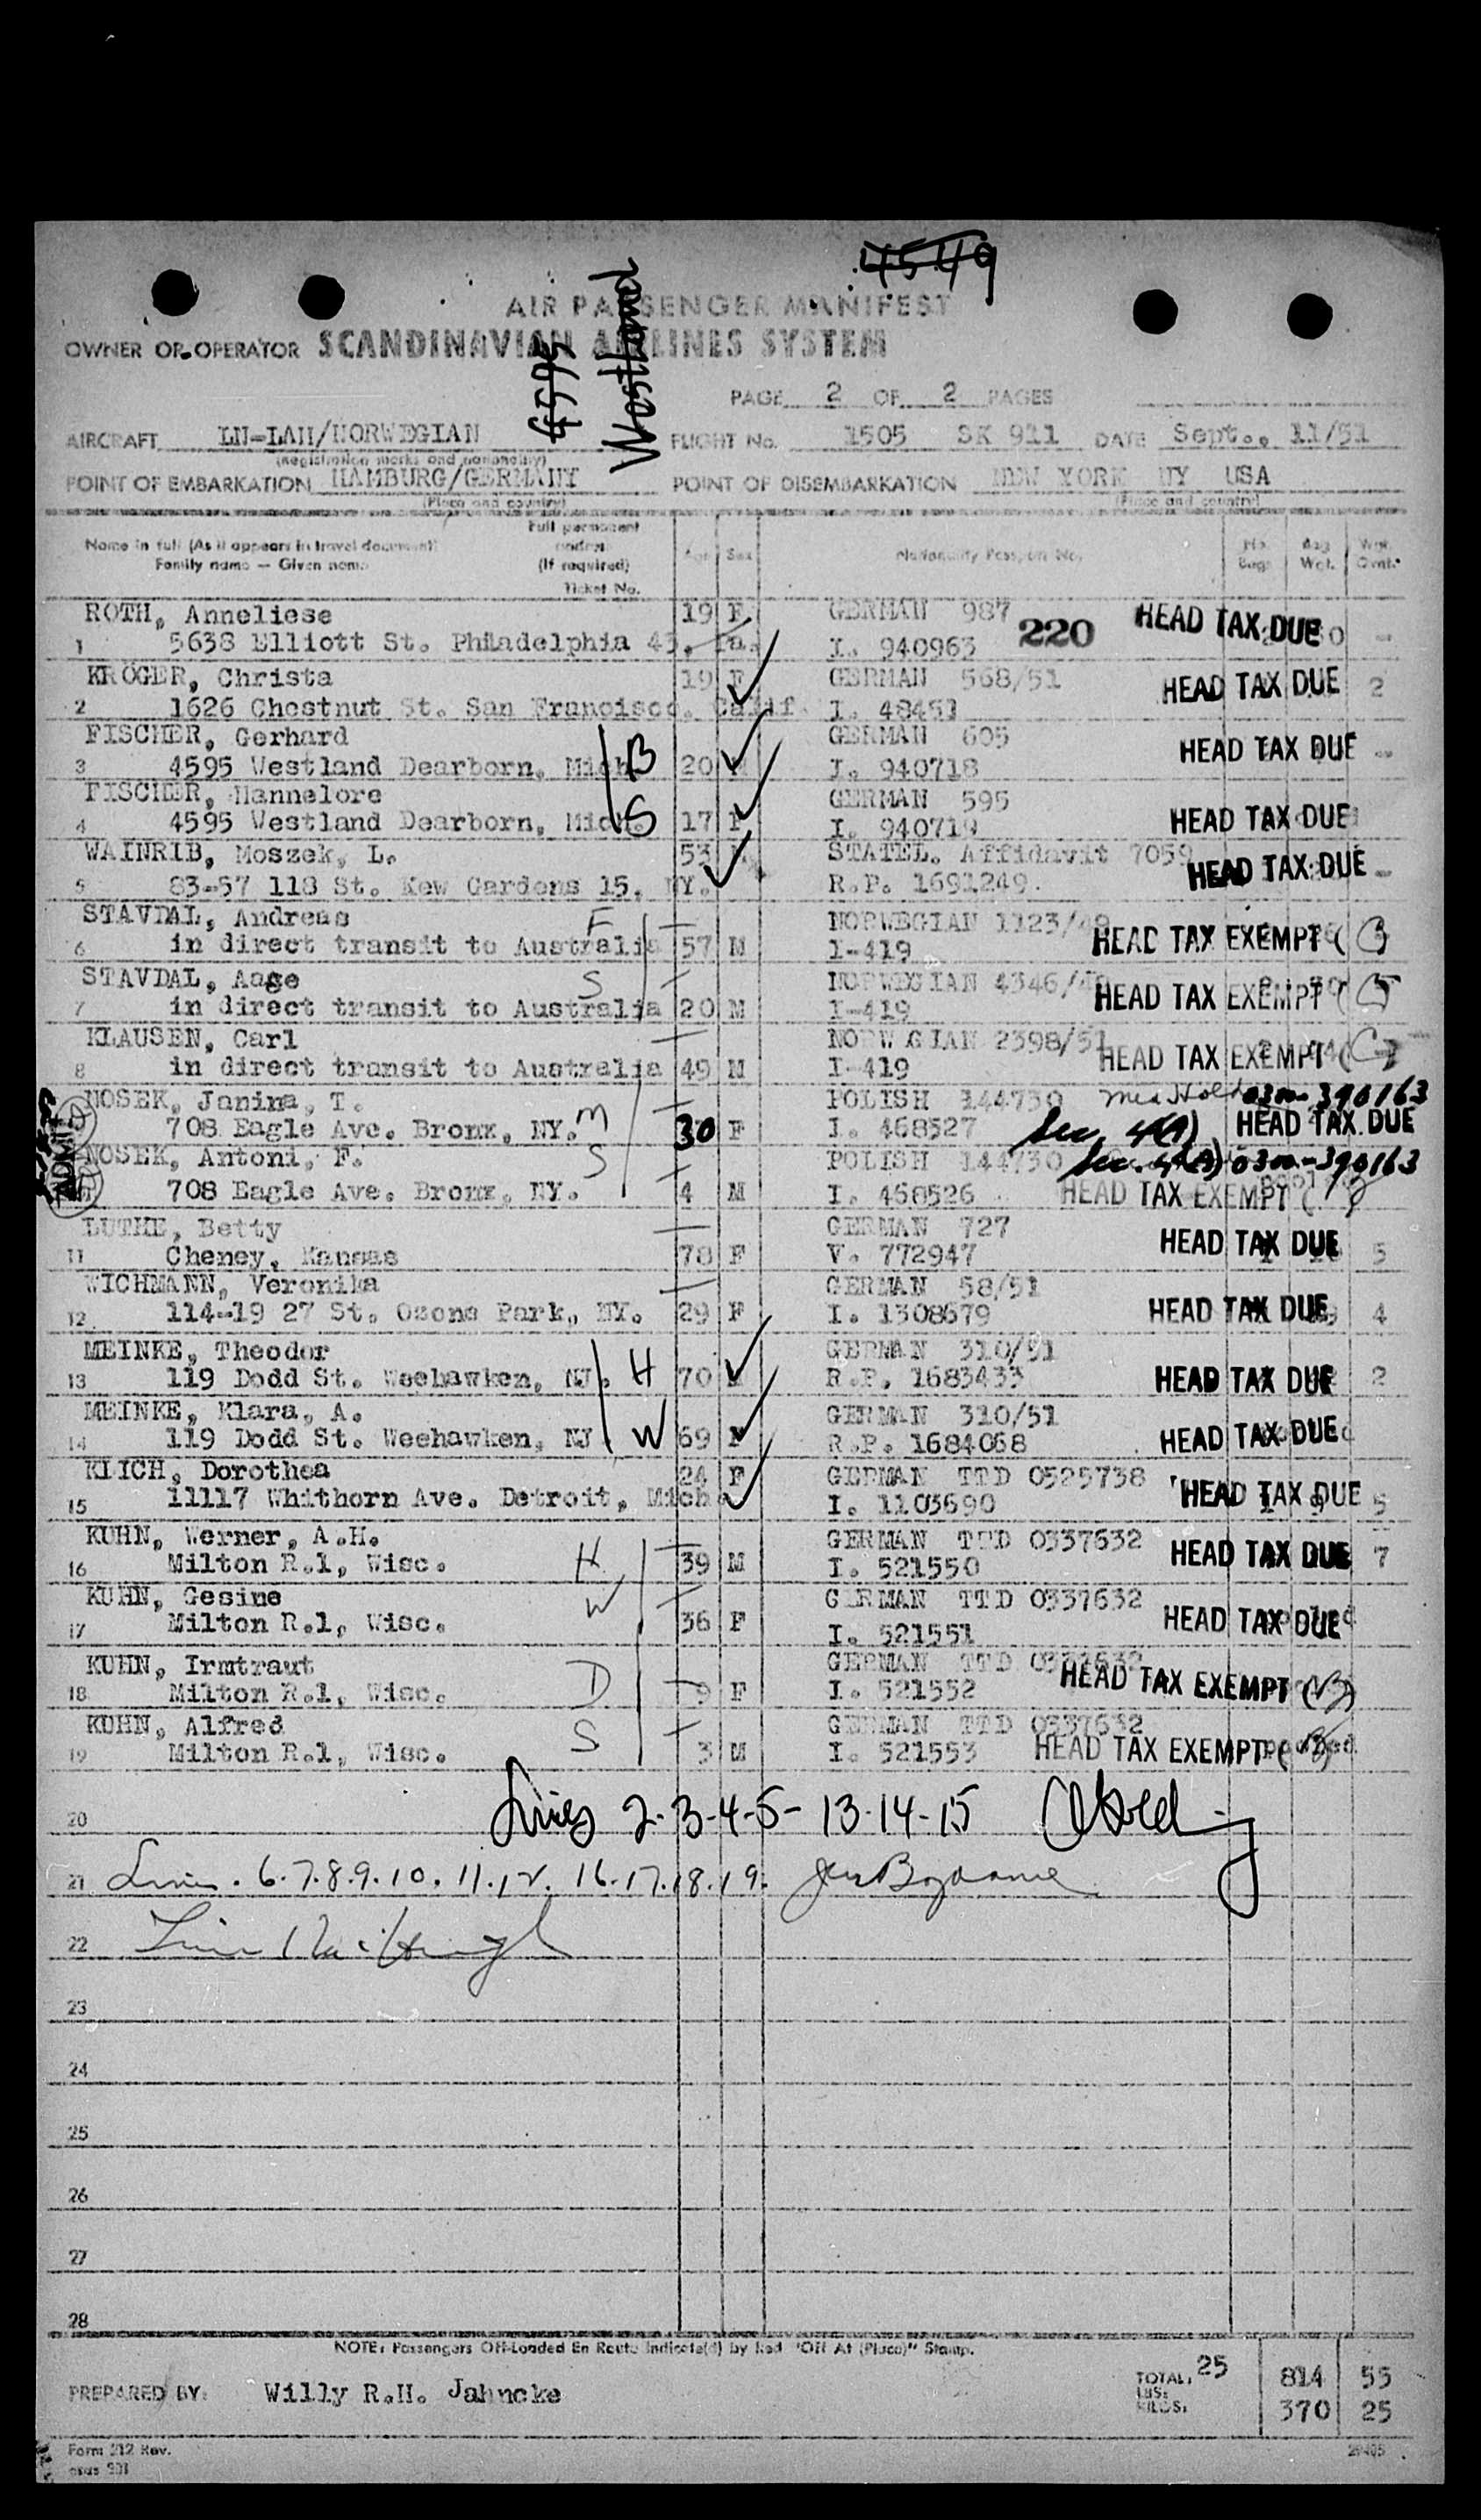 4549
AIR PASSENGER MANIFEST
OWNER OR OPERATOR SCANDINAVIAN AIRLINES SYSTEM
4595 Westland
PAGE 2 OF 2 PAGES
AIRCRAFT LN-LAH/NORWEGIAN FLIGHT No. 1505 SK 911 DATE Sept., 11/51
(Registration marks and nationality)
POINT OF EMBARKATION HAMBURG/GERMANY POINT OF DISEMBARKATION NEW YORK NY USA
(Place and country) (Place and country)
Name in full (As it appears in travel document) Full permanent address Age Sex Nationality Passport No. No. Bags Bag Wgt. Wgt.
Family name — Given name (If required)
Ticket No.
ROTH, Anneliese 19 F GERMAN 987 HEAD TAX DUE
1 5638 Elliott St. Philadelphia 43, Pa. I. 940963 220
KRÖGER, Christa 19 F GERMAN 568/51 HEAD TAX DUE 2
2 1626 Chestnut St. San Francisco. Calif. I. 48451
FISCHER, Gerhard B GERMAN 605 HEAD TAX DUE
3 4595 Westland Dearborn, Mich. 20 M I. 940718
FISCHER, Hannelore GERMAN 595
4 4595 Westland Dearborn, Mich. S 17 F I. 940719 HEAD TAX DUE
WAINRIB, Moszek, L. 53 STATEL. Affidavit 7059 HEAD TAX DUE
5 83-57 118 St. Kew Gardens 15, NY. R.P. 1691249.
STAVDAL, Andreas F NORWEGIAN 1123/49
6 in direct transit to Australia 57 M I-419 HEAD TAX EXEMPT
STAVDAL, Aage S NORWEGIAN 4346/
7 in direct transit to Australia 20 M I-419 HEAD TAX EXEMPT
KLAUSEN, Carl NORWEGIAN 2398/51
8 in direct transit to Australia 49 M I-419 HEAD TAX EXEMPT
NOSEK, Janina, T. POLISH 144730 0300-390163
708 Eagle Ave. Bronx, NY. M 30 F I. 468527 Sec. 4(A) HEAD TAX DUE
ADMIT
NOSEK, Antoni, F. S POLISH 144730 0300-390163
708 Eagle Ave. Bronx, NY. 4 M I. 468526 HEAD TAX EXEMPT
LUTHE, Betty GERMAN 727 HEAD TAX DUE
11 Cheney, Kansas 78 F V. 772947 5
WICHMANN, Veronika GERMAN 58/51
12 114-19 27 St. Ozone Park, NY. 29 F I. 1308679 HEAD TAX DUE 4
MEINKE, Theodor GERMAN 310/51
13 119 Dodd St. Weehawken, NJ. H 70 R.P. 1683433 HEAD TAX DUE 2
MEINKE, Klara, A. GERMAN 310/51
14 119 Dodd St. Weehawken, NJ W 69 F R.P. 1684068 HEAD TAX DUE
KLICH, Dorothea 24 F GERMAN TTD 0525738
15 11117 Whithorn Ave. Detroit, Mich. I. 1103690 HEAD TAX DUE 5
KUHN, Werner, A.H. GERMAN TTD 0337632
16 Milton R.1, Wisc. H 39 M I. 521550 HEAD TAX DUE 7
KUHN, Gesine W GERMAN TTD 0337632
17 Milton R.1, Wisc. 36 F I. 521551 HEAD TAX DUE
KUHN, Irmtraut GERMAN TTD 0337632
18 Milton R.1, Wisc. D 9 F I. 521552 HEAD TAX EXEMPT
KUHN, Alfred GERMAN TTD 0337632
19 Milton R.1, Wisc. S 3 M I. 521553 HEAD TAX EXEMPT pooled
20 Lines 2-3-4-5-13-14-15
21 Lines. 6.7.8.9.10.11.12. 16.17.18.19.
22 Line
23
24
25
26
27
28
NOTE: Passengers Off-Loaded En Route Indicate(d) by Red "Off At (Place)" Stamp.
TOTAL, 25 814 55
LBS:
PREPARED BY: Willy R.H. Jahncke
KILOS. 370 25
Form 212 Rev.